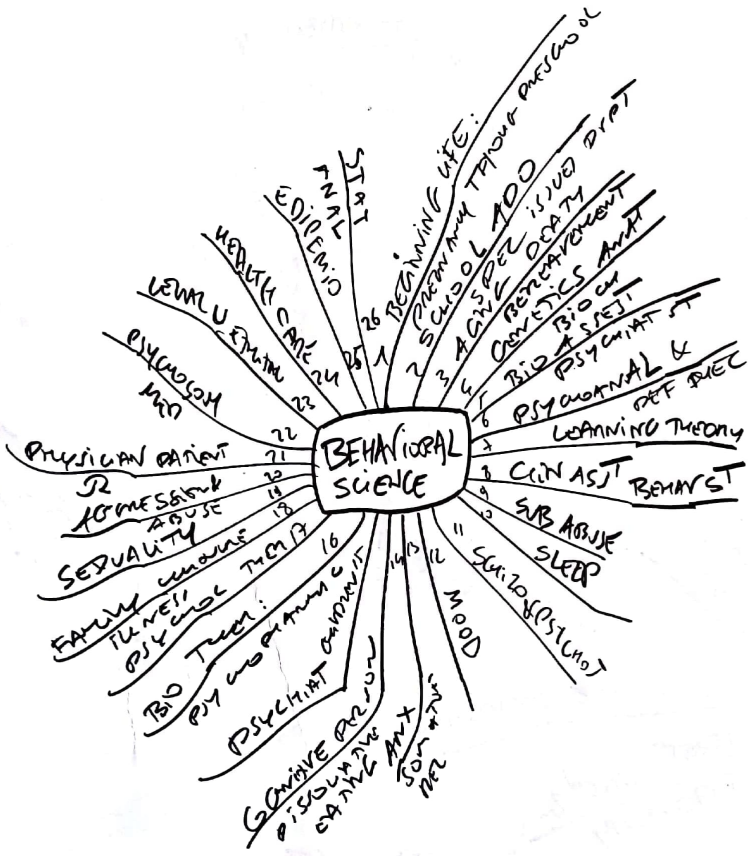 BEHAVIORAL
SCIENCE
1
BEGINNING LIFE:
PREGNANCY THROUG PRESCHOOL
2
SCHOOL ADO
SPEC ISSUES
3
AGING DEATH
BEREAVEMENT
4
GENETICS ANAT
BIOCH
5
BIO ASSEST
PSYCHIAT ST
6
PSYCHOANAL &
DEF MEC
7
LEARNING THEORY
8
CLIN ASST
BEHAV ST
9
SUB ABUSE
10
SLEEP
11
SCHIZO & PSYCHOT
12
MOOD
13
ANX
SOMATIC
14
COGNITIVE PERSON
DISSOCIATIVE
EATING
15
PSYCHIAT CHILDREN
16
BIO THER:
PSYCHOPHARMAC
17
PSYCHOL THER
18
FAMILY CULTURE
ILLNESS
19
SEXUALITY
20
AGGRESSION &
ABUSE
21
PHYSICIAN PATIENT
R
22
PSYCHOSOM
MED
23
LEGAL & ETHICAL
24
HEALTH CARE
25
EPIDEMIO
26
STAT
ANAL